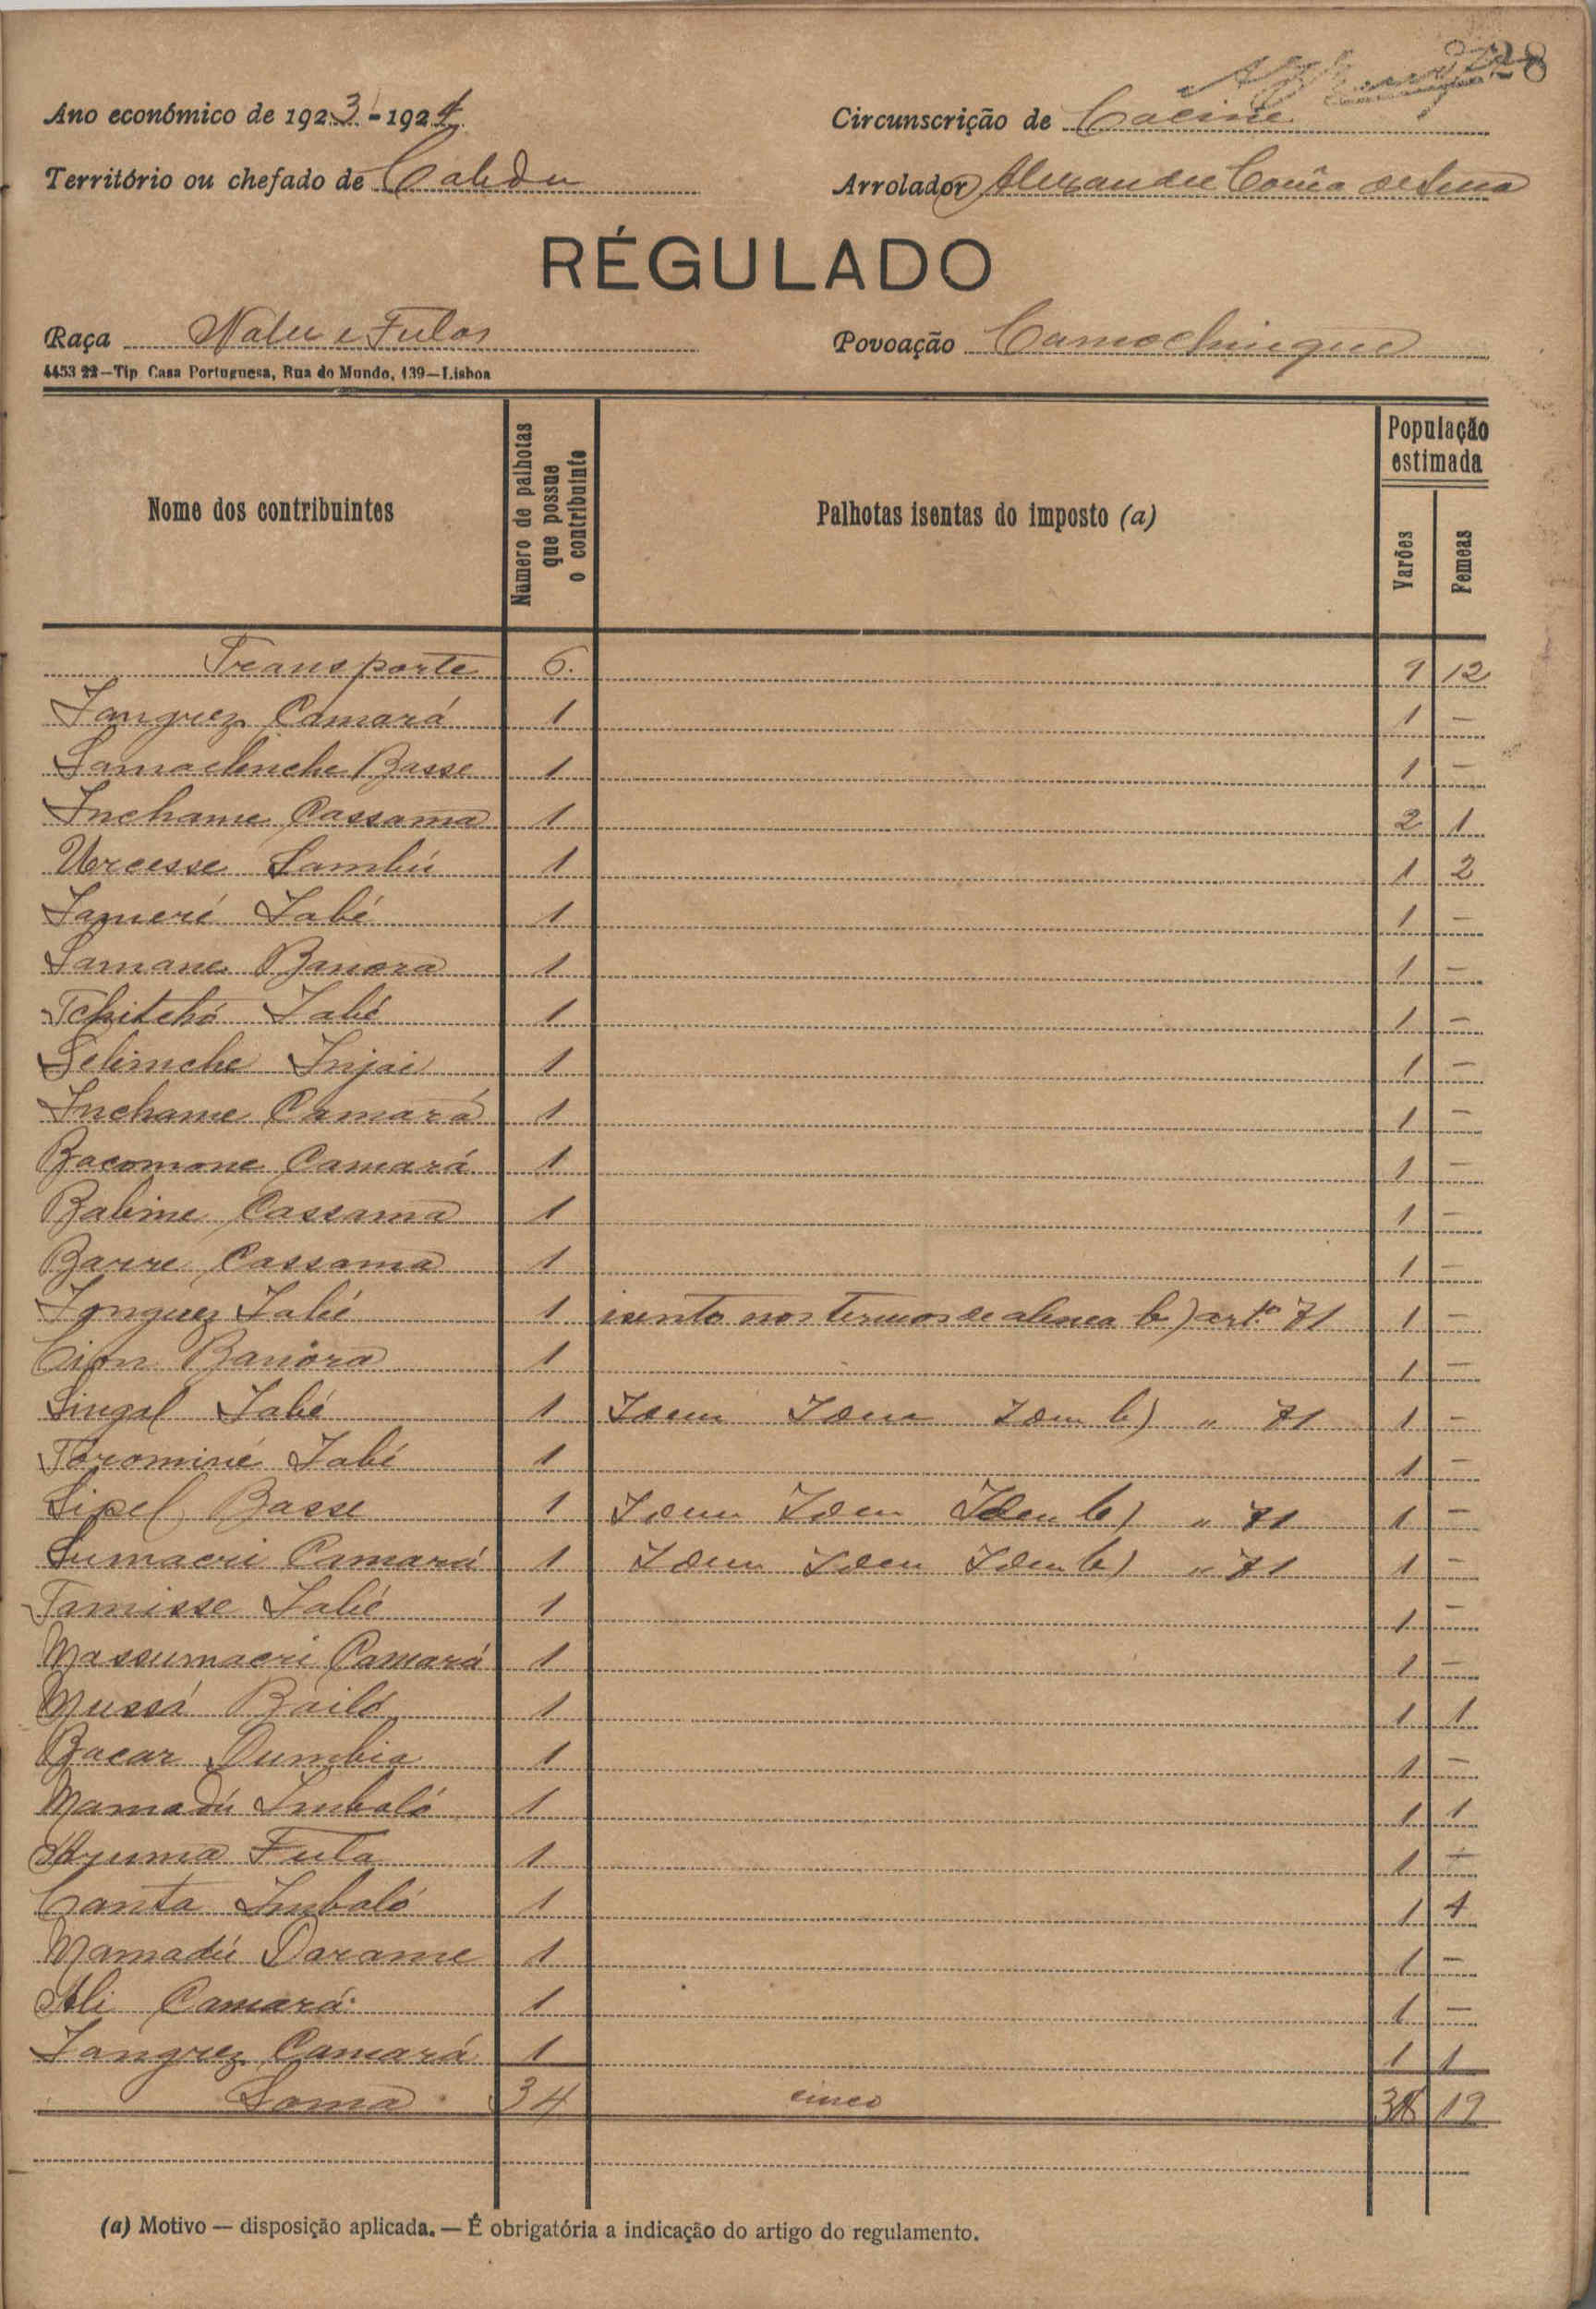 28
Ano económico de 1923-1924 Circunscrição de Cacine
Território ou chefado de Cabedu Arrolador Alexandre Corrêa de Sena
RÉGULADO
Raça Nalu e Fulas Povoação Camochingue
4453 22—Tip Casa Portuguesa, Rua do Mundo, 139—Lisboa
Nome dos contribuintes Numero de palhotas que possue o contribuinte Palhotas isentas do imposto (a) População estimada Varões Femeas
Transporte 6 9 12
Janguez Camará 1 1 —
Samachinche Basse 1 1 —
Inchame Cassama 1 2 1
Urcesse Sambú 1 1 2
Jameré Jabé 1 1 —
Samane Banora 1 1 —
Tchitchó Jabé 1 1 —
Selimche Injai 1 1 —
Inchame Camará 1 1 —
Bacomone Camará 1 1 —
Babime Cassama 1 1 —
Barre Cassama 1 1 —
Jonguez Jabé 1 isento nos termos de alinea b) artº 71 1 —
Cion Banora 1 1 —
Singal Jabé 1 Idem Idem Idem b) " 71 1 —
Toromine Jabé 1 1 —
Sipel Basse 1 Idem Idem Idem b) " 71 1 —
Sumacri Camará 1 Idem Idem Idem b) " 71 1 —
Tamisse Jabé 1 1 —
Massumacri Camará 1 1 —
Mussá Bailó 1 1 1
Bacar Dumbia 1 1 —
Mamadú Imbaló 1 1 1
Ajuma Fula 1 1 —
Canta Imbaló 1 1 1
Mamadú Darame 1 1 —
Ali Camará 1 1 —
Jangrez Camará 1 1 1
Soma 34 cinco 38 19
(a) Motivo — disposição aplicada. — É obrigatória a indicação do artigo do regulamento.